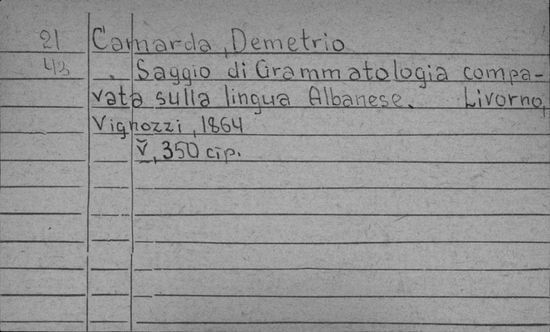 21 Camarda, Demetrio
43 Saggio di Grammatologia compa-
rata sulla lingua Albanese. Livorno,
Vignozzi, 1864
V, 350 cтр.